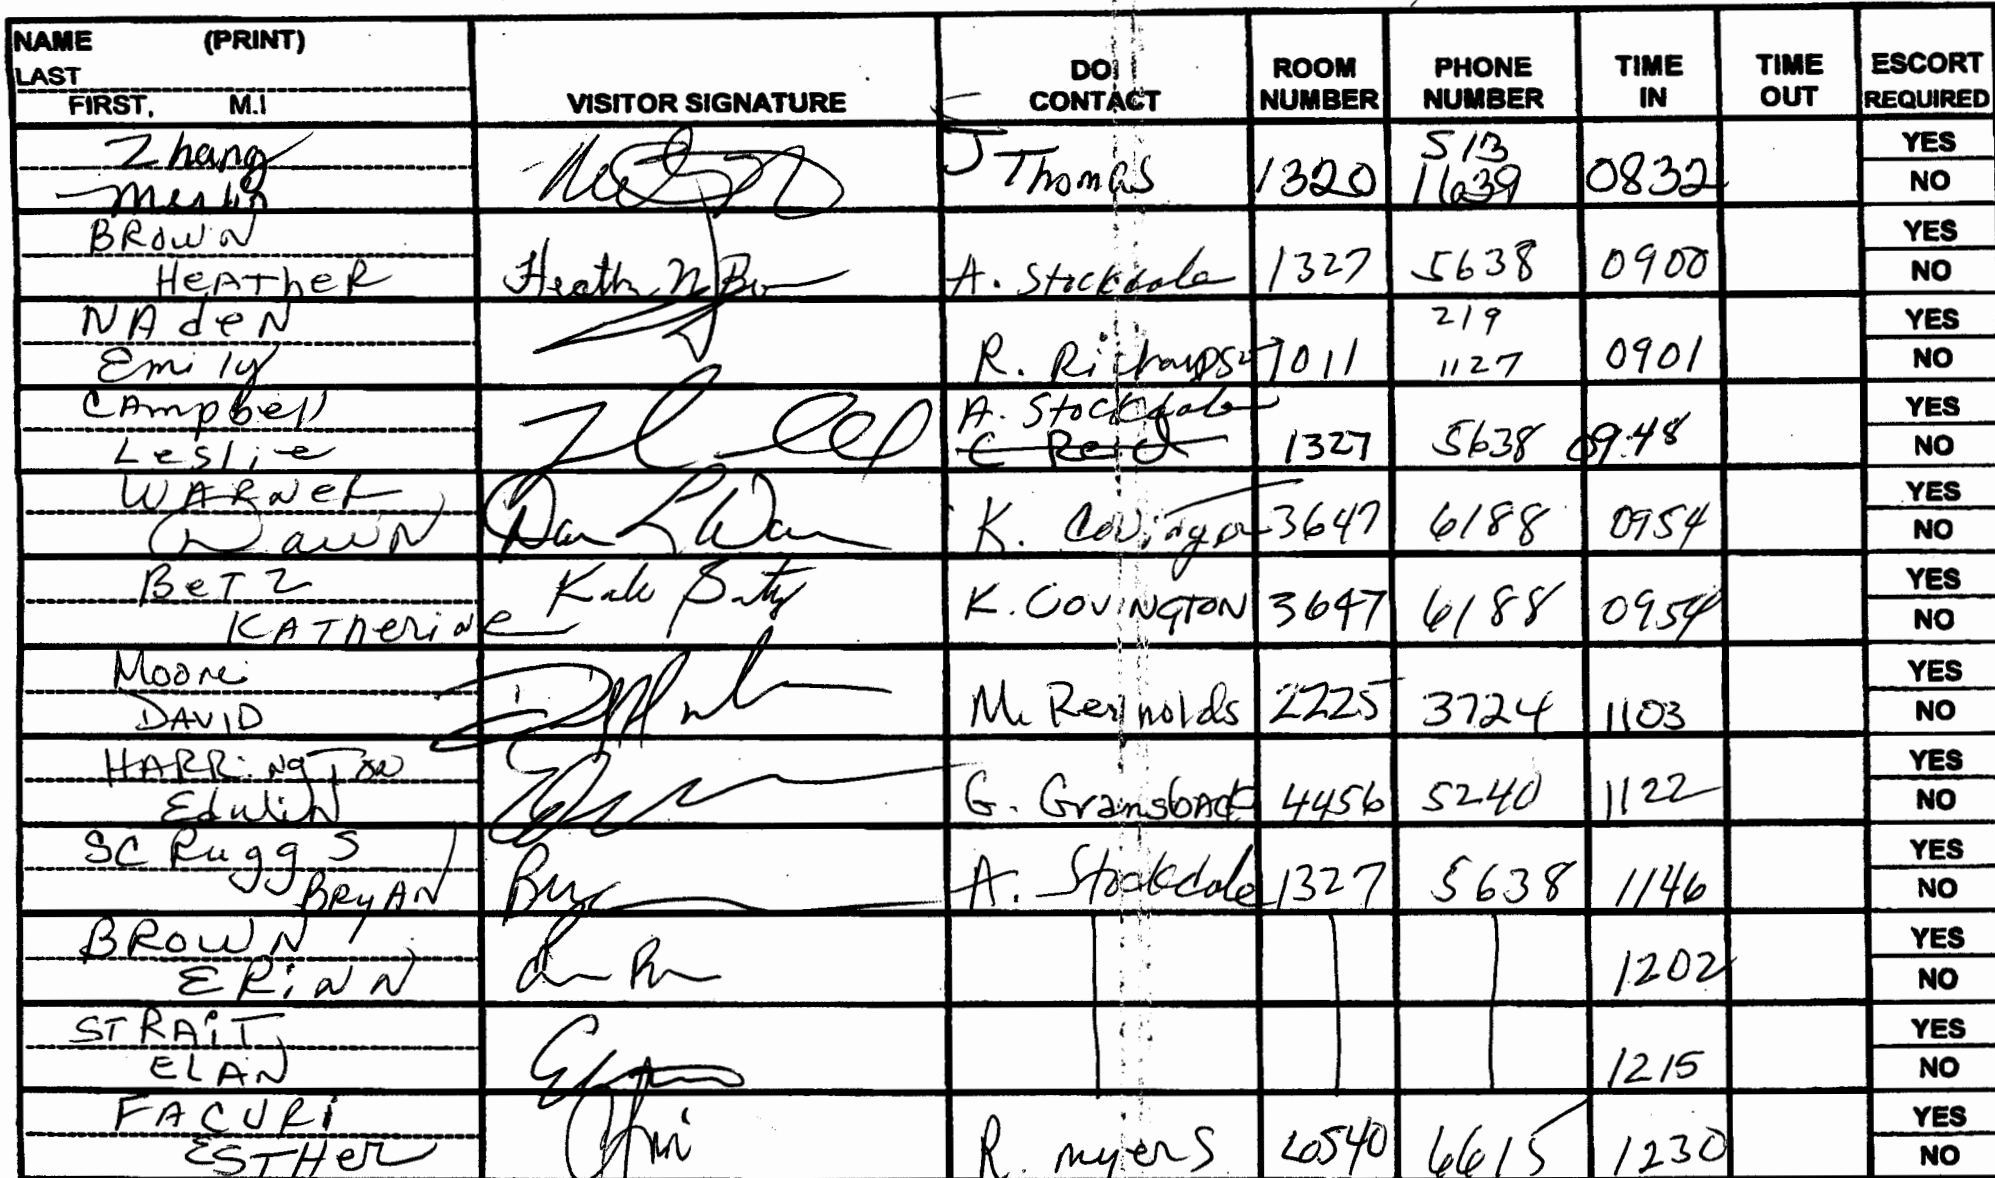 NAME (PRINT)
LAST
FIRST, M.I
VISITOR SIGNATURE
DO CONTACT
ROOM NUMBER
PHONE NUMBER
TIME IN
TIME OUT
ESCORT REQUIRED
Zhang
J Thomas 1320 513 0832 YES NO
BROWN
HEATHER Heath N A. Stockdale 1327 5638 0900 YES NO
NAdeN
Emily R. 1011 219 1127 0901 YES NO
CAmpbell
Leslie A. Stockdale C Reid 1327 5638 0948 YES NO
WARNER
DawN K. Covington 3647 6188 0954 YES NO
BeTZ
KATherine K. COVINGTON 3647 6188 0954 YES NO
Moore
DAVID M. Reynolds 2225 3724 1103 YES NO
HARRiNgTON
EdwiN G. Gransback 4456 5240 1122 YES NO
SCRuggS
BRyAN A. Stockdale 1327 5638 1146 YES NO
BROWN
ERiNN 1202 YES NO
STRAiT,
ELAN 1215 YES NO
FACURi
ESTHer R. myers 6615 1230 YES NO